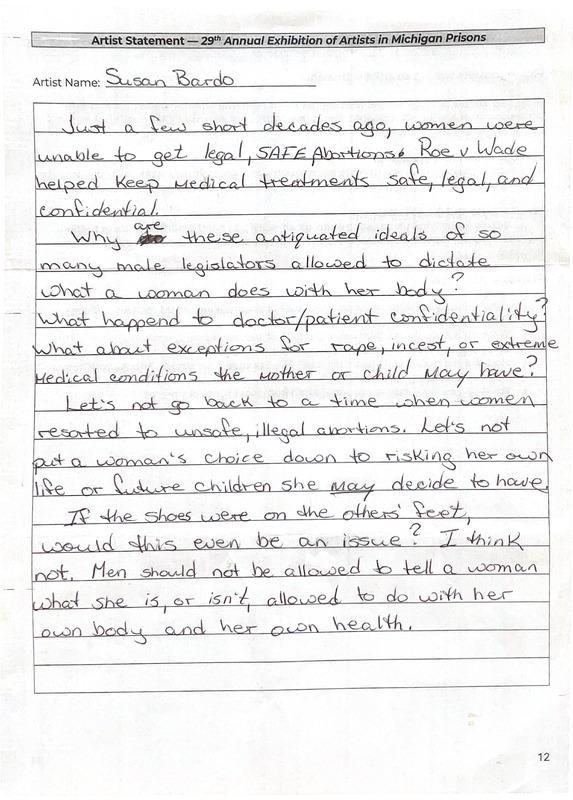 Artist Statement — 29th Annual Exhibition of Artists in Michigan Prisons
Artist Name: Susan Bardo
Just a few short decades ago, women were
unable to get legal, SAFE Abortions. Roe v Wade
helped Keep Medical treatments safe, legal, and
confidential.
Why are these antiquated ideals of so
many male legislators allowed to dictate
what a woman does with her body?
What happend to doctor/patient confidentiality?
What about exceptions for rape, incest, or extreme
Medical conditions the Mother or child May have?
Let's not go back to a time when women
resorted to unsafe, illegal abortions. Let's not
put a woman's choice down to risking her own
life or future children she may decide to have.
If the shoes were on the others' feet,
would this even be an issue? I think
not. Men should not be allowed to tell a woman
what she is, or isn't, allowed to do with her
own body and her own health.
12